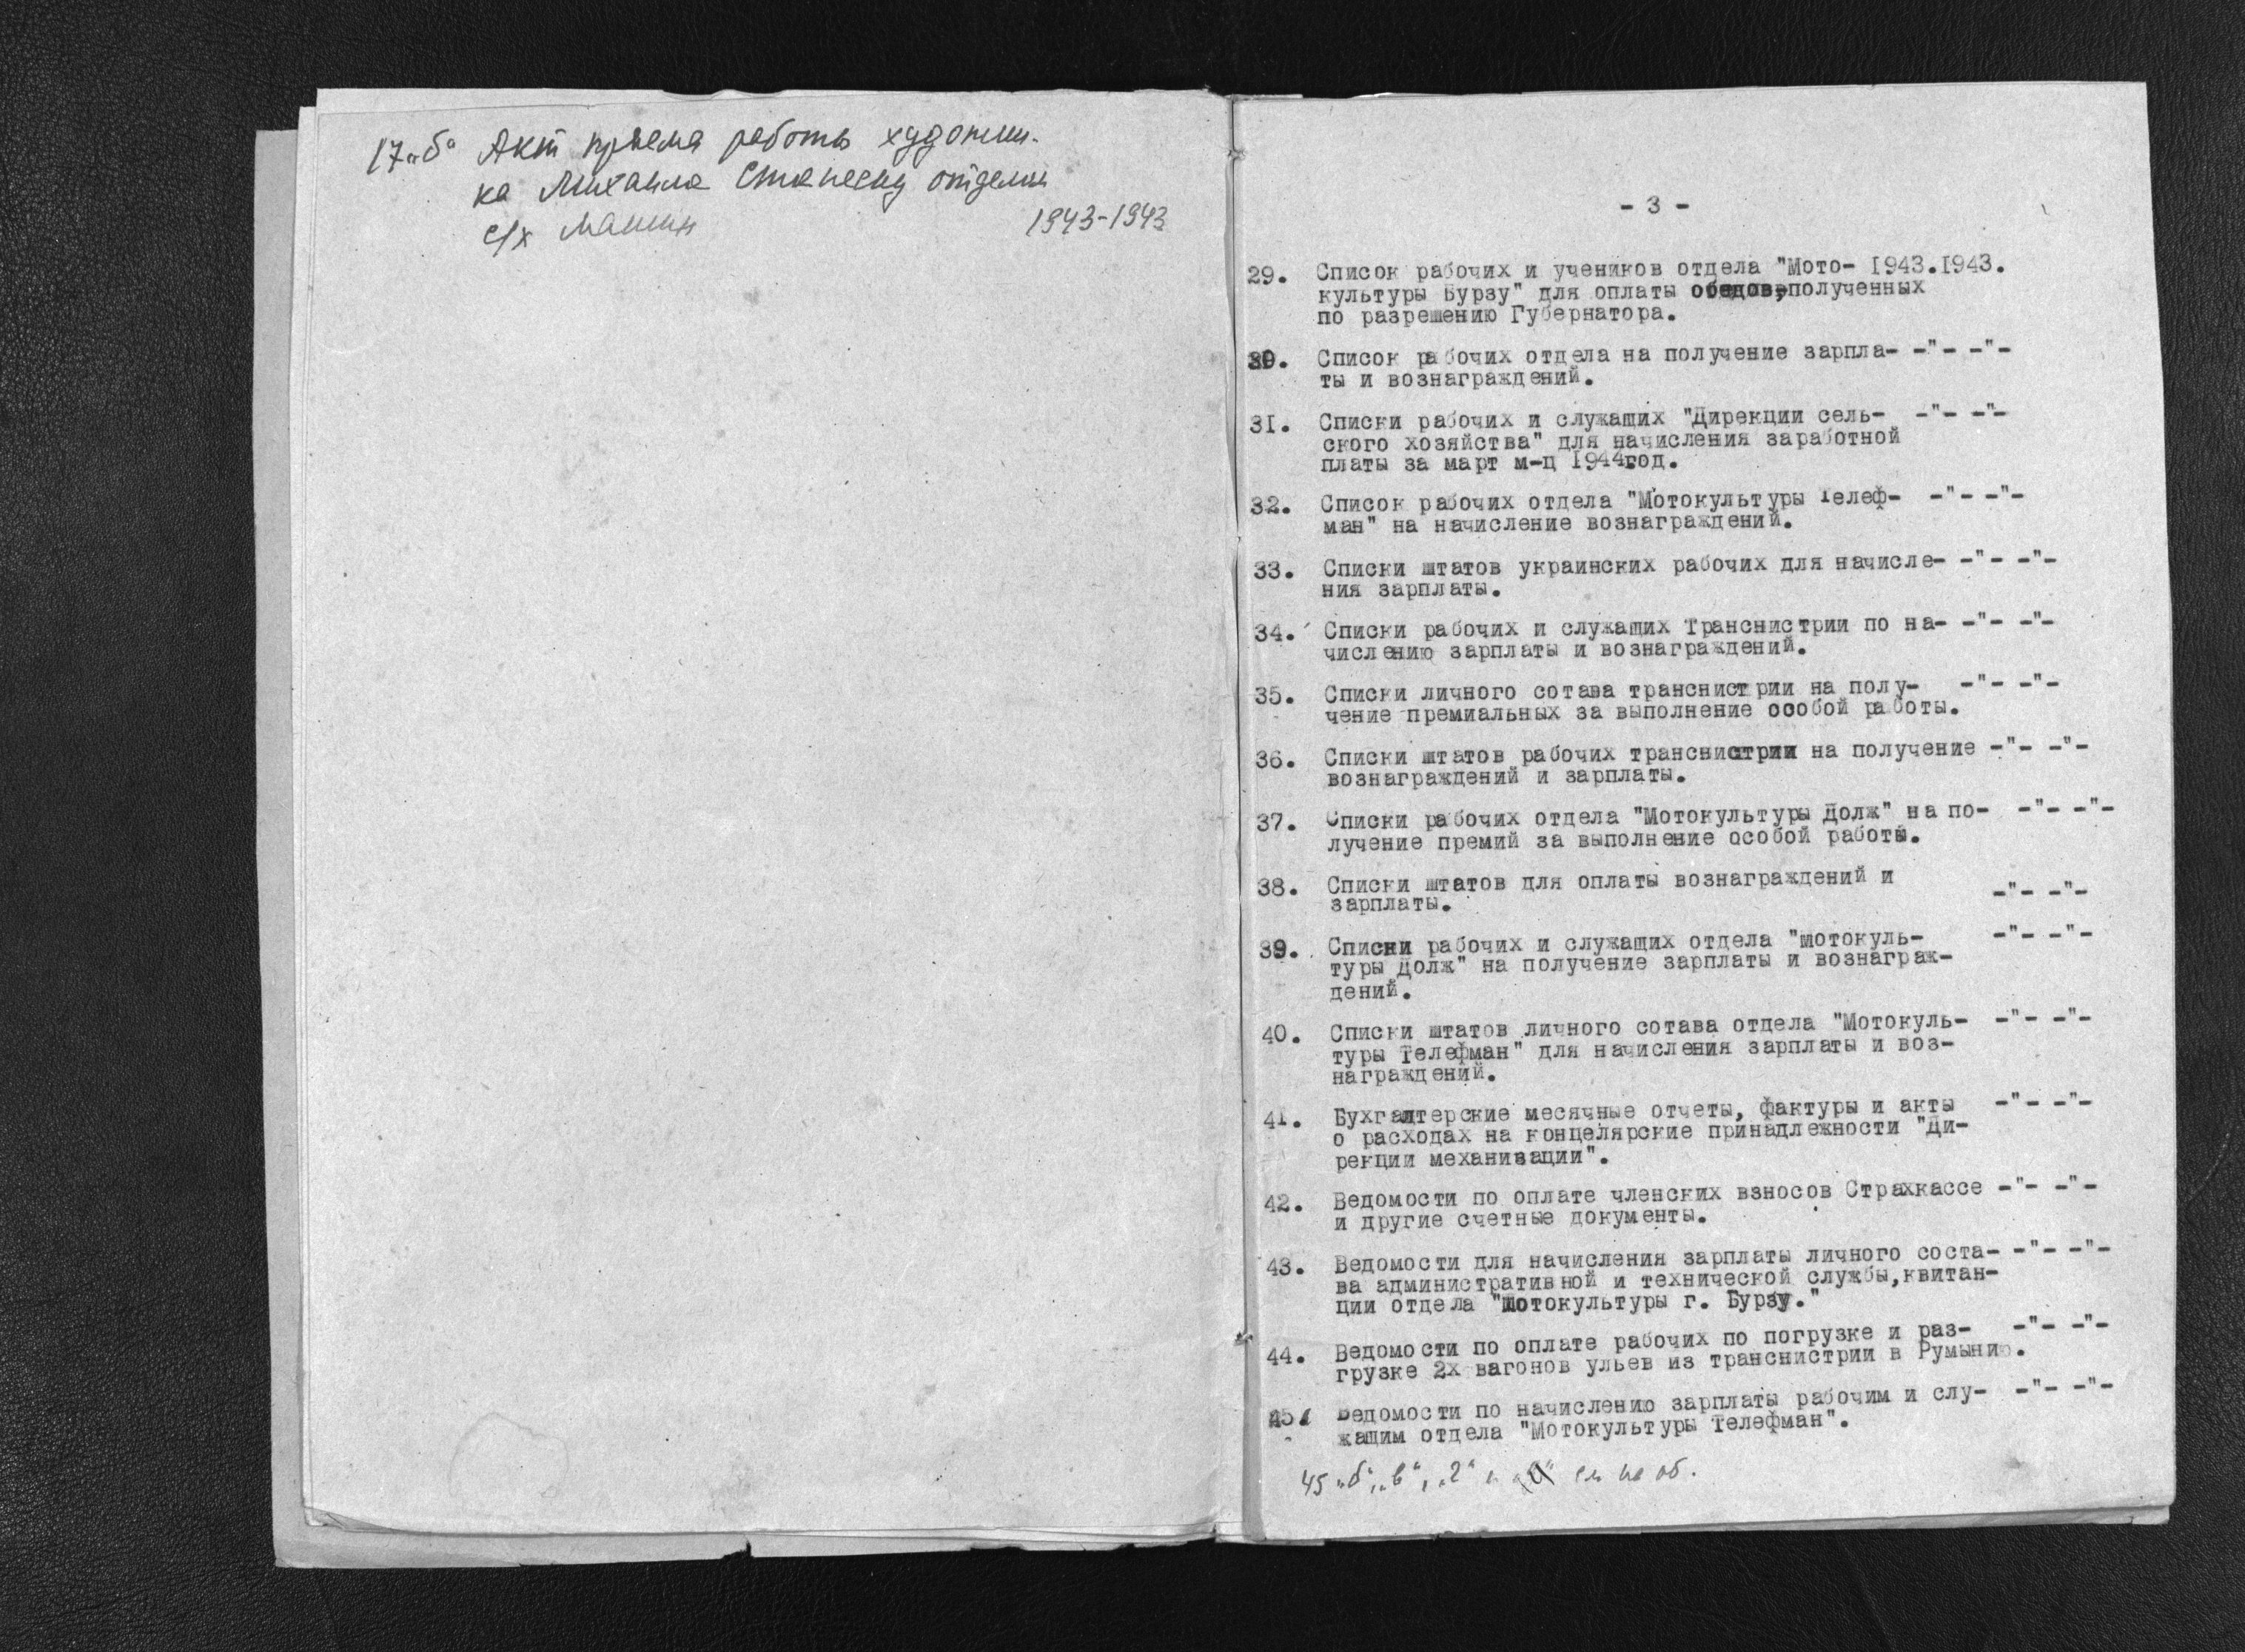 17 „б“ Акт приема работы художни-
ка Михаила Станеску отделки
с/х машин 1943-1943
- 3 -
29. Список рабочих и учеников отдела "Мото- 1943.1943.
культуры Бурзу" для оплаты обедов, полученных
по разрешению Губернатора.
30. Список рабочих отдела на получение зарпла- -"- -"-
ты и вознаграждений.
31. Списки рабочих и служащих "Дирекции сель- -"- -"-
ского хозяйства" для начисления заработной
платы за март м-ц 1944год.
32. Список рабочих отдела "Мотокультуры Телеф- -"- -"-
ман" на начисление вознаграждений.
33. Списки штатов украинских рабочих для начисле- -"- -"-
ния зарплаты.
34. Списки рабочих и служащих Транснистрии по на- -"- -"-
числению зарплаты и вознаграждений.
35. Списки личного сотава транснистрии на полу- -"- -"-
чение премиальных за выполнение особой работы.
36. Списки штатов рабочих транснистрии на получение -"- -"-
вознаграждений и зарплаты.
37. Списки рабочих отдела "Мотокультуры Долж" на по- -"- -"-
лучение премий за выполнение особой работы.
38. Списки штатов для оплаты вознаграждений и
зарплаты. -"- -"-
39. Списки рабочих и служащих отдела "мотокуль- -"- -"-
туры Долж" на получение зарплаты и вознаграж-
дений.
40. Списки штатов личного сотава отдела "Мотокуль- -"- -"-
туры Телефман" для начисления зарплаты и воз-
награждений.
41. Бухгалтерские месячные отчеты, фактуры и акты -"- -"-
о расходах на концелярские принадлежности "Ди-
рекции механизации".
42. Ведомости по оплате членских взносов Страхкассе -"- -"-
и другие счетные документы.
43. Ведомости для начисления зарплаты личного соста- -"- -"-
ва административной и технической службы,квитан-
ции отдела "мотокультуры г. Бурзу."
44. Ведомости по оплате рабочих по погрузке и раз- -"- -"-
грузке 2х вагонов ульев из транснистрии в Румынию.
45. Ведомости по начислению зарплаты рабочим и слу- -"- -"-
жащим отдела "Мотокультуры Телефман".
45 „б“, „в“, „г“ см на об.